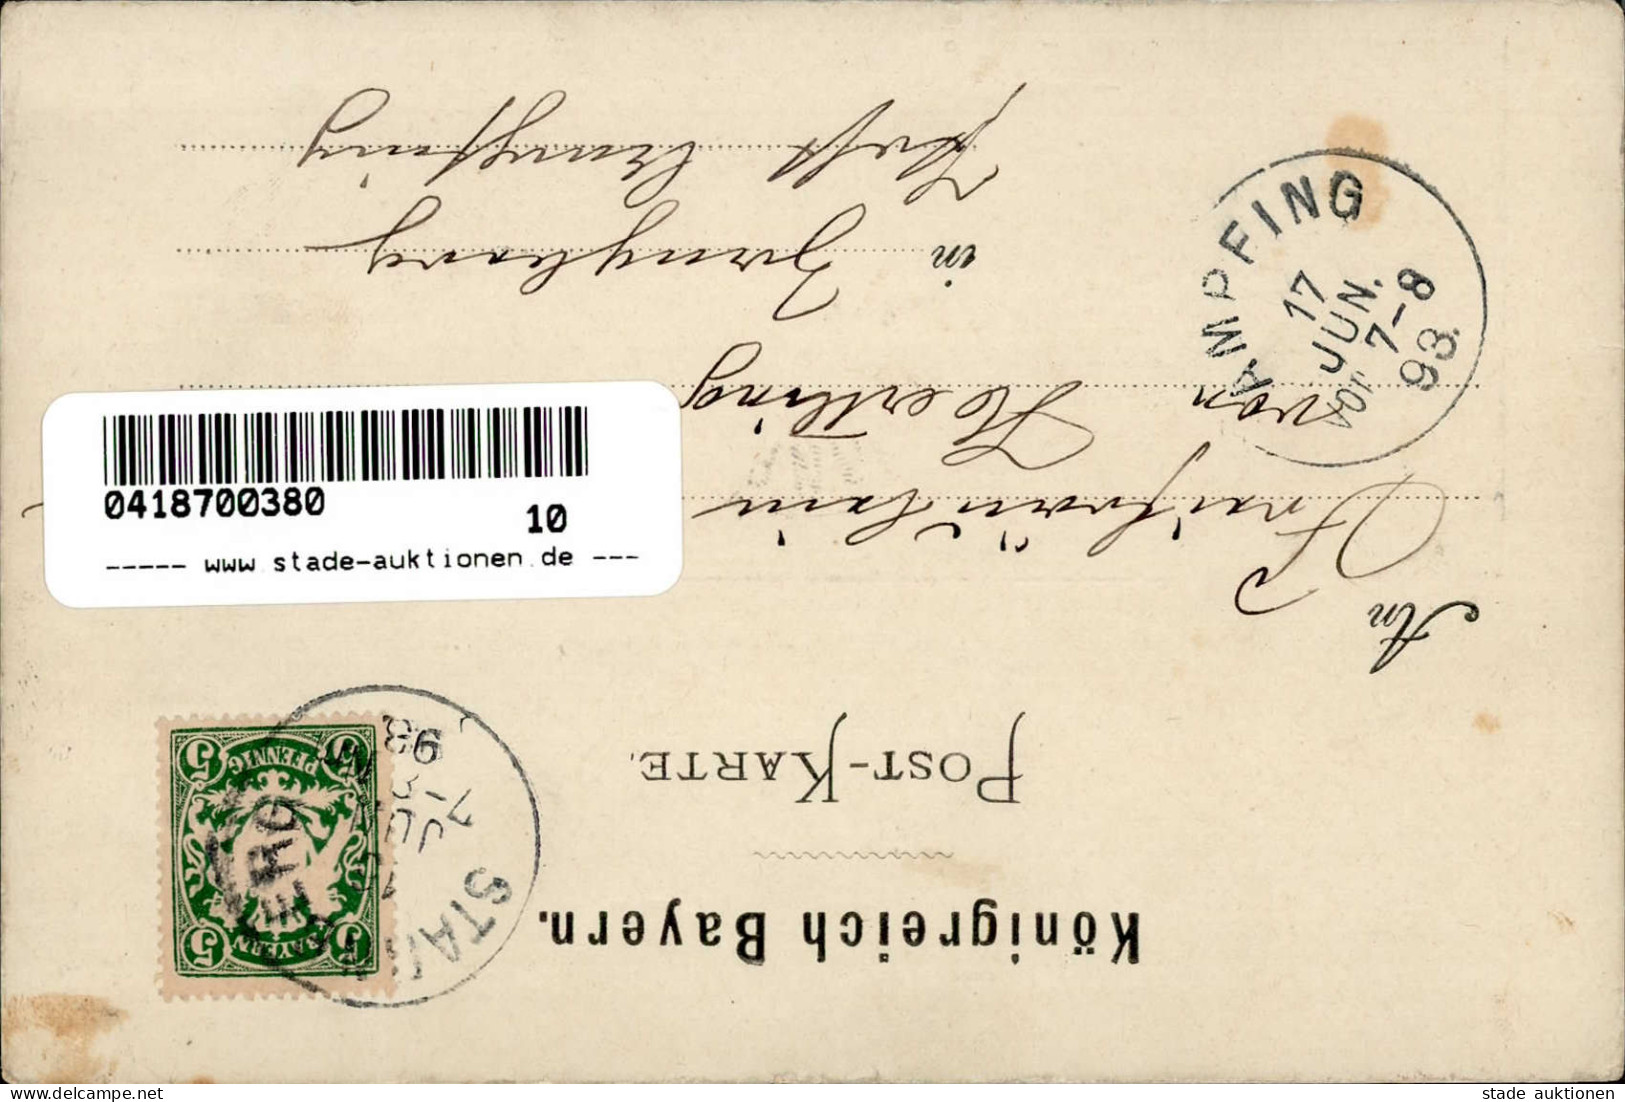 Königreich Bayern.
POST-KARTE.
An
Fräulein
von Hoertling
in
Post
AMPFING
17
JUN.
VOR. 7-8
93.
STARNBERG
JUN
7-8
93
5 5
BAYERN
PFENNIG
5 5
0418700380
10
----- www.stade-auktionen.de ---
stade auktionen